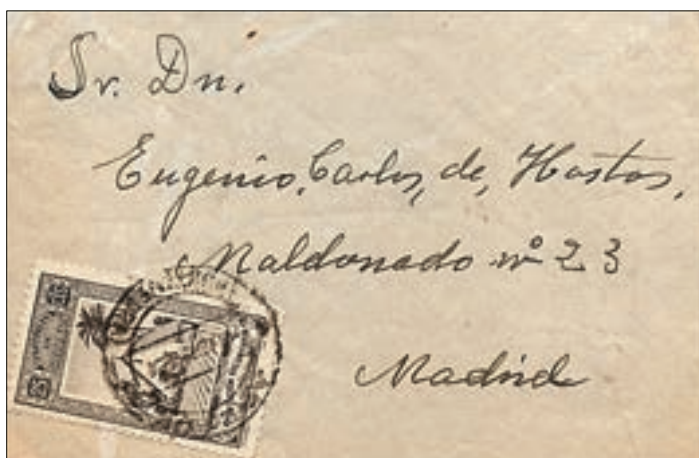 Sr. Dn.
Eugenio, Carlos, de, Hostos,
Maldonado nº 23
Madrid